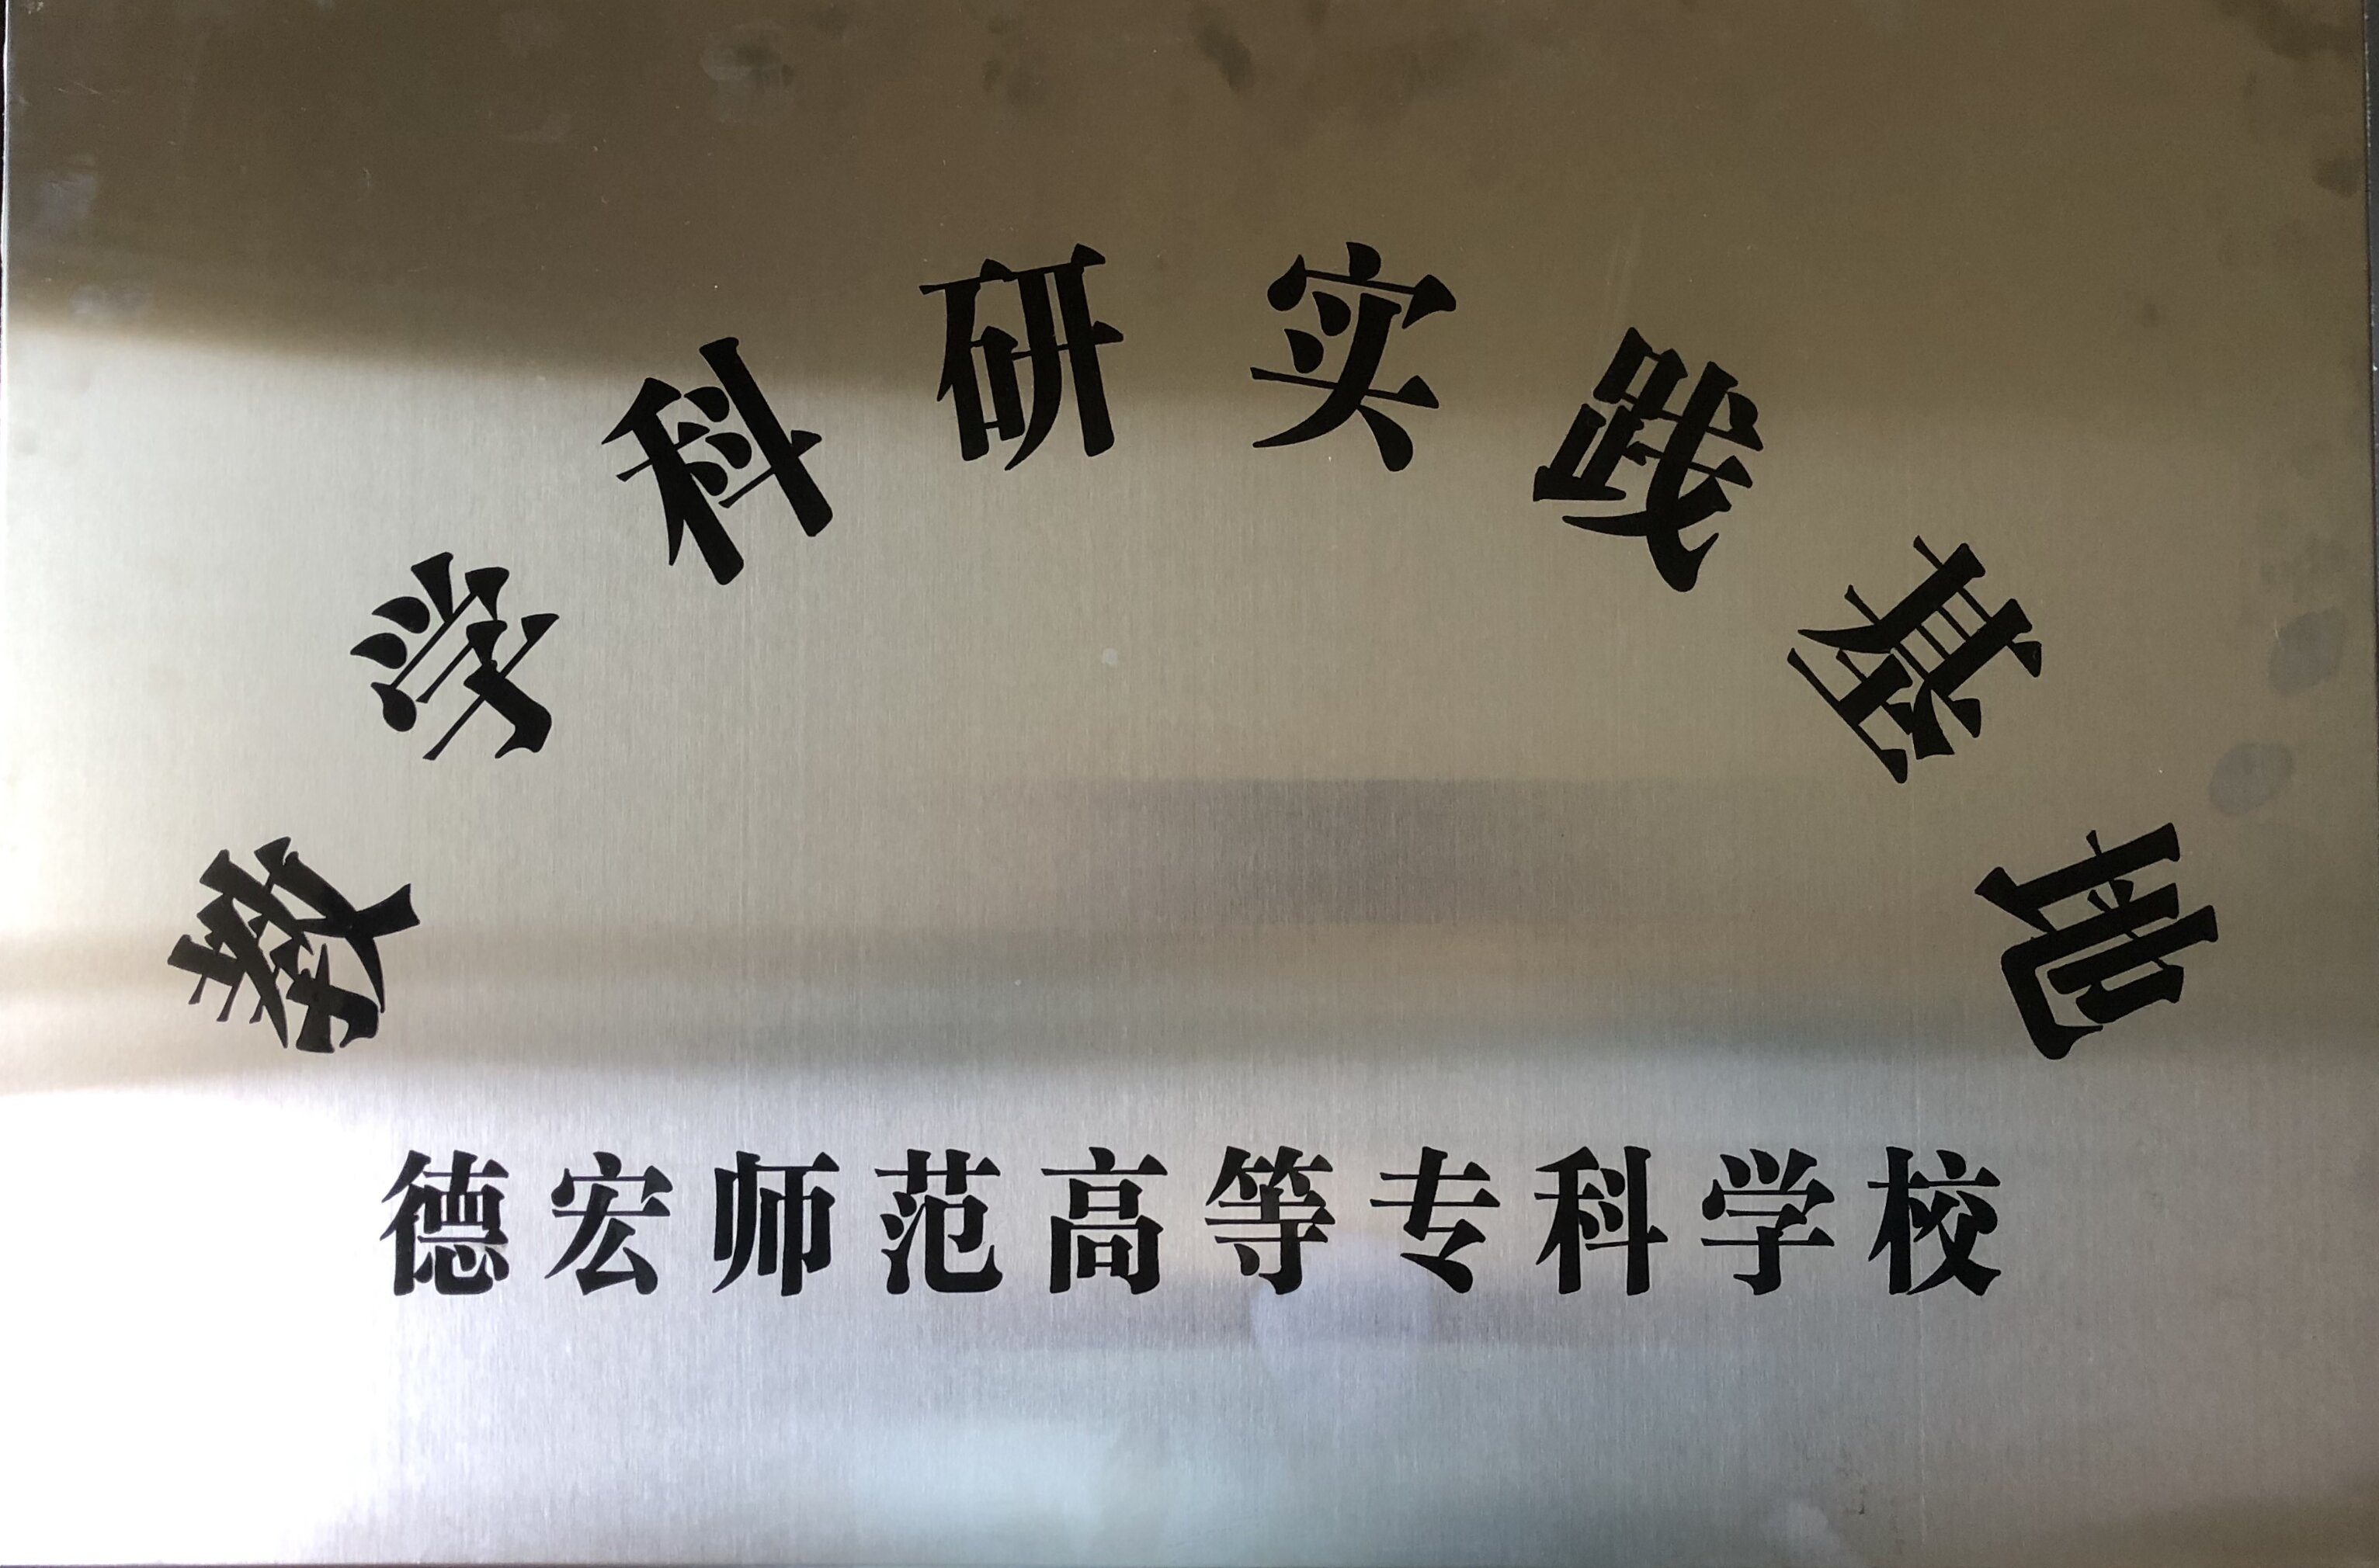 教学科研实践基地
德宏师范高等专科学校